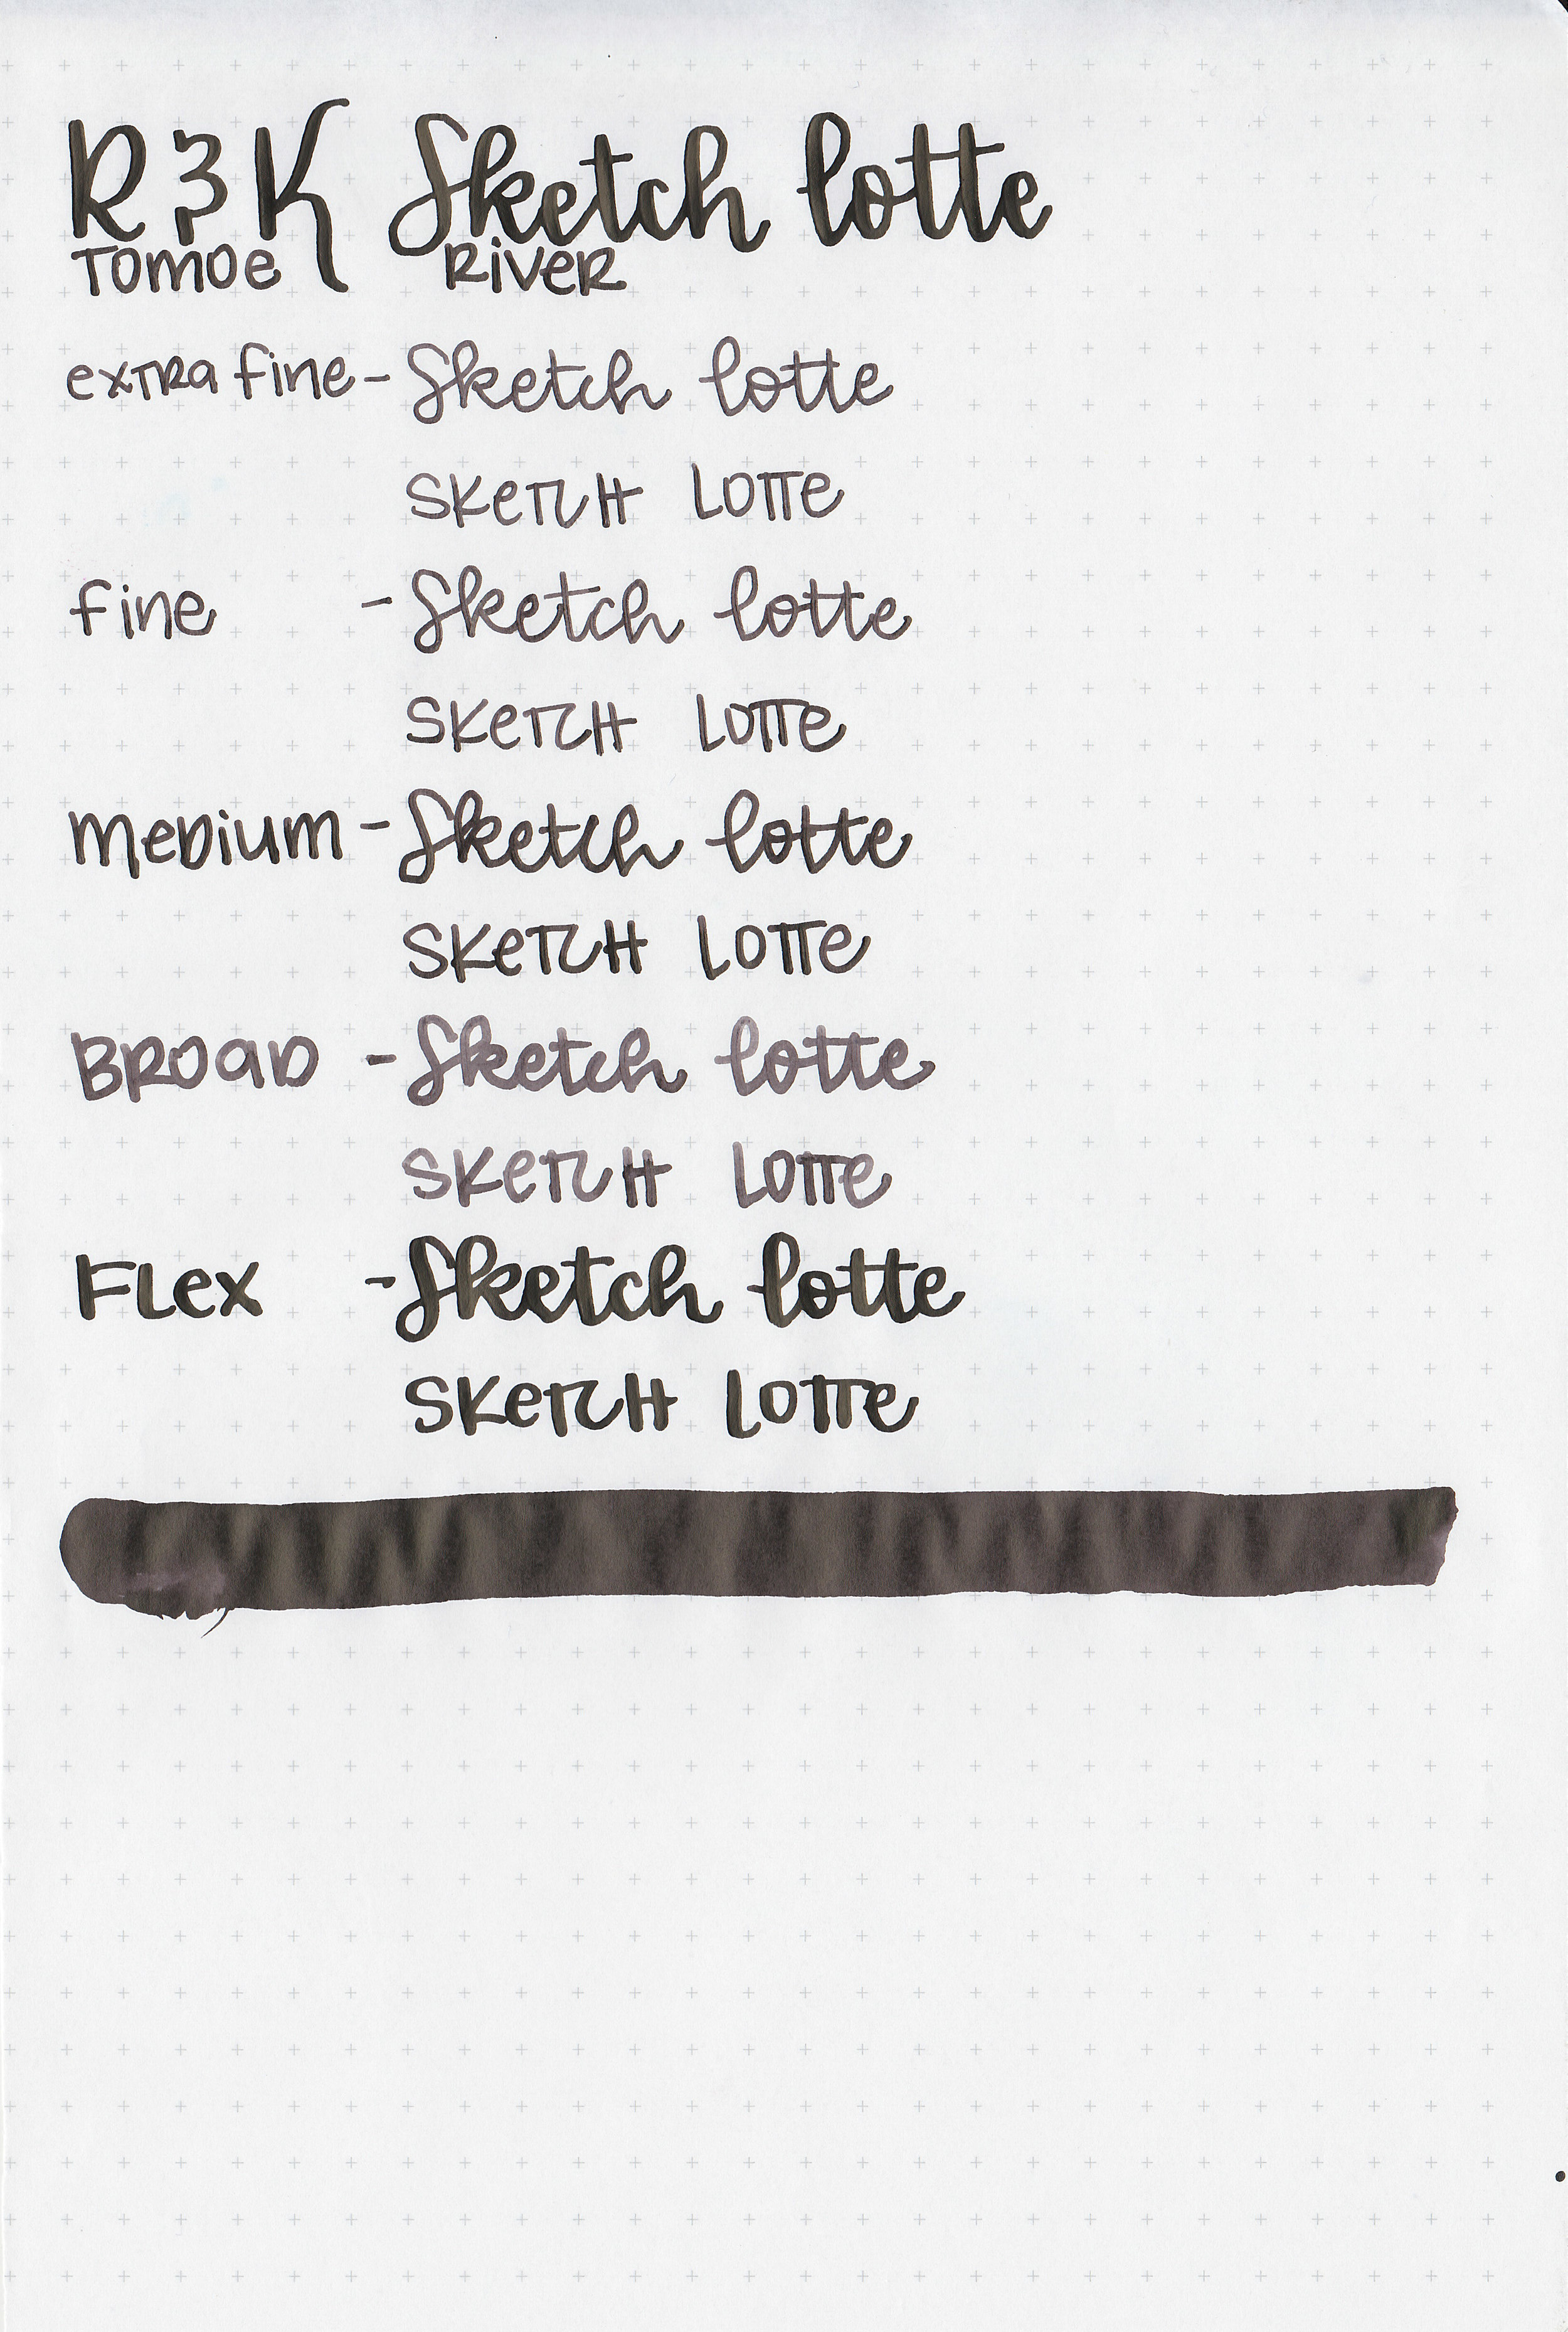 R & K Sketch lotte
TOMOE RIVER
extra fine - Sketch lotte
SKETCH LOTTE
fine - Sketch lotte
SKETCH LOTTE
Medium - Sketch lotte
SKETCH LOTTE
BROAD - Sketch lotte
SKETCH LOTTE
FLEX - Sketch lotte
SKETCH LOTTE